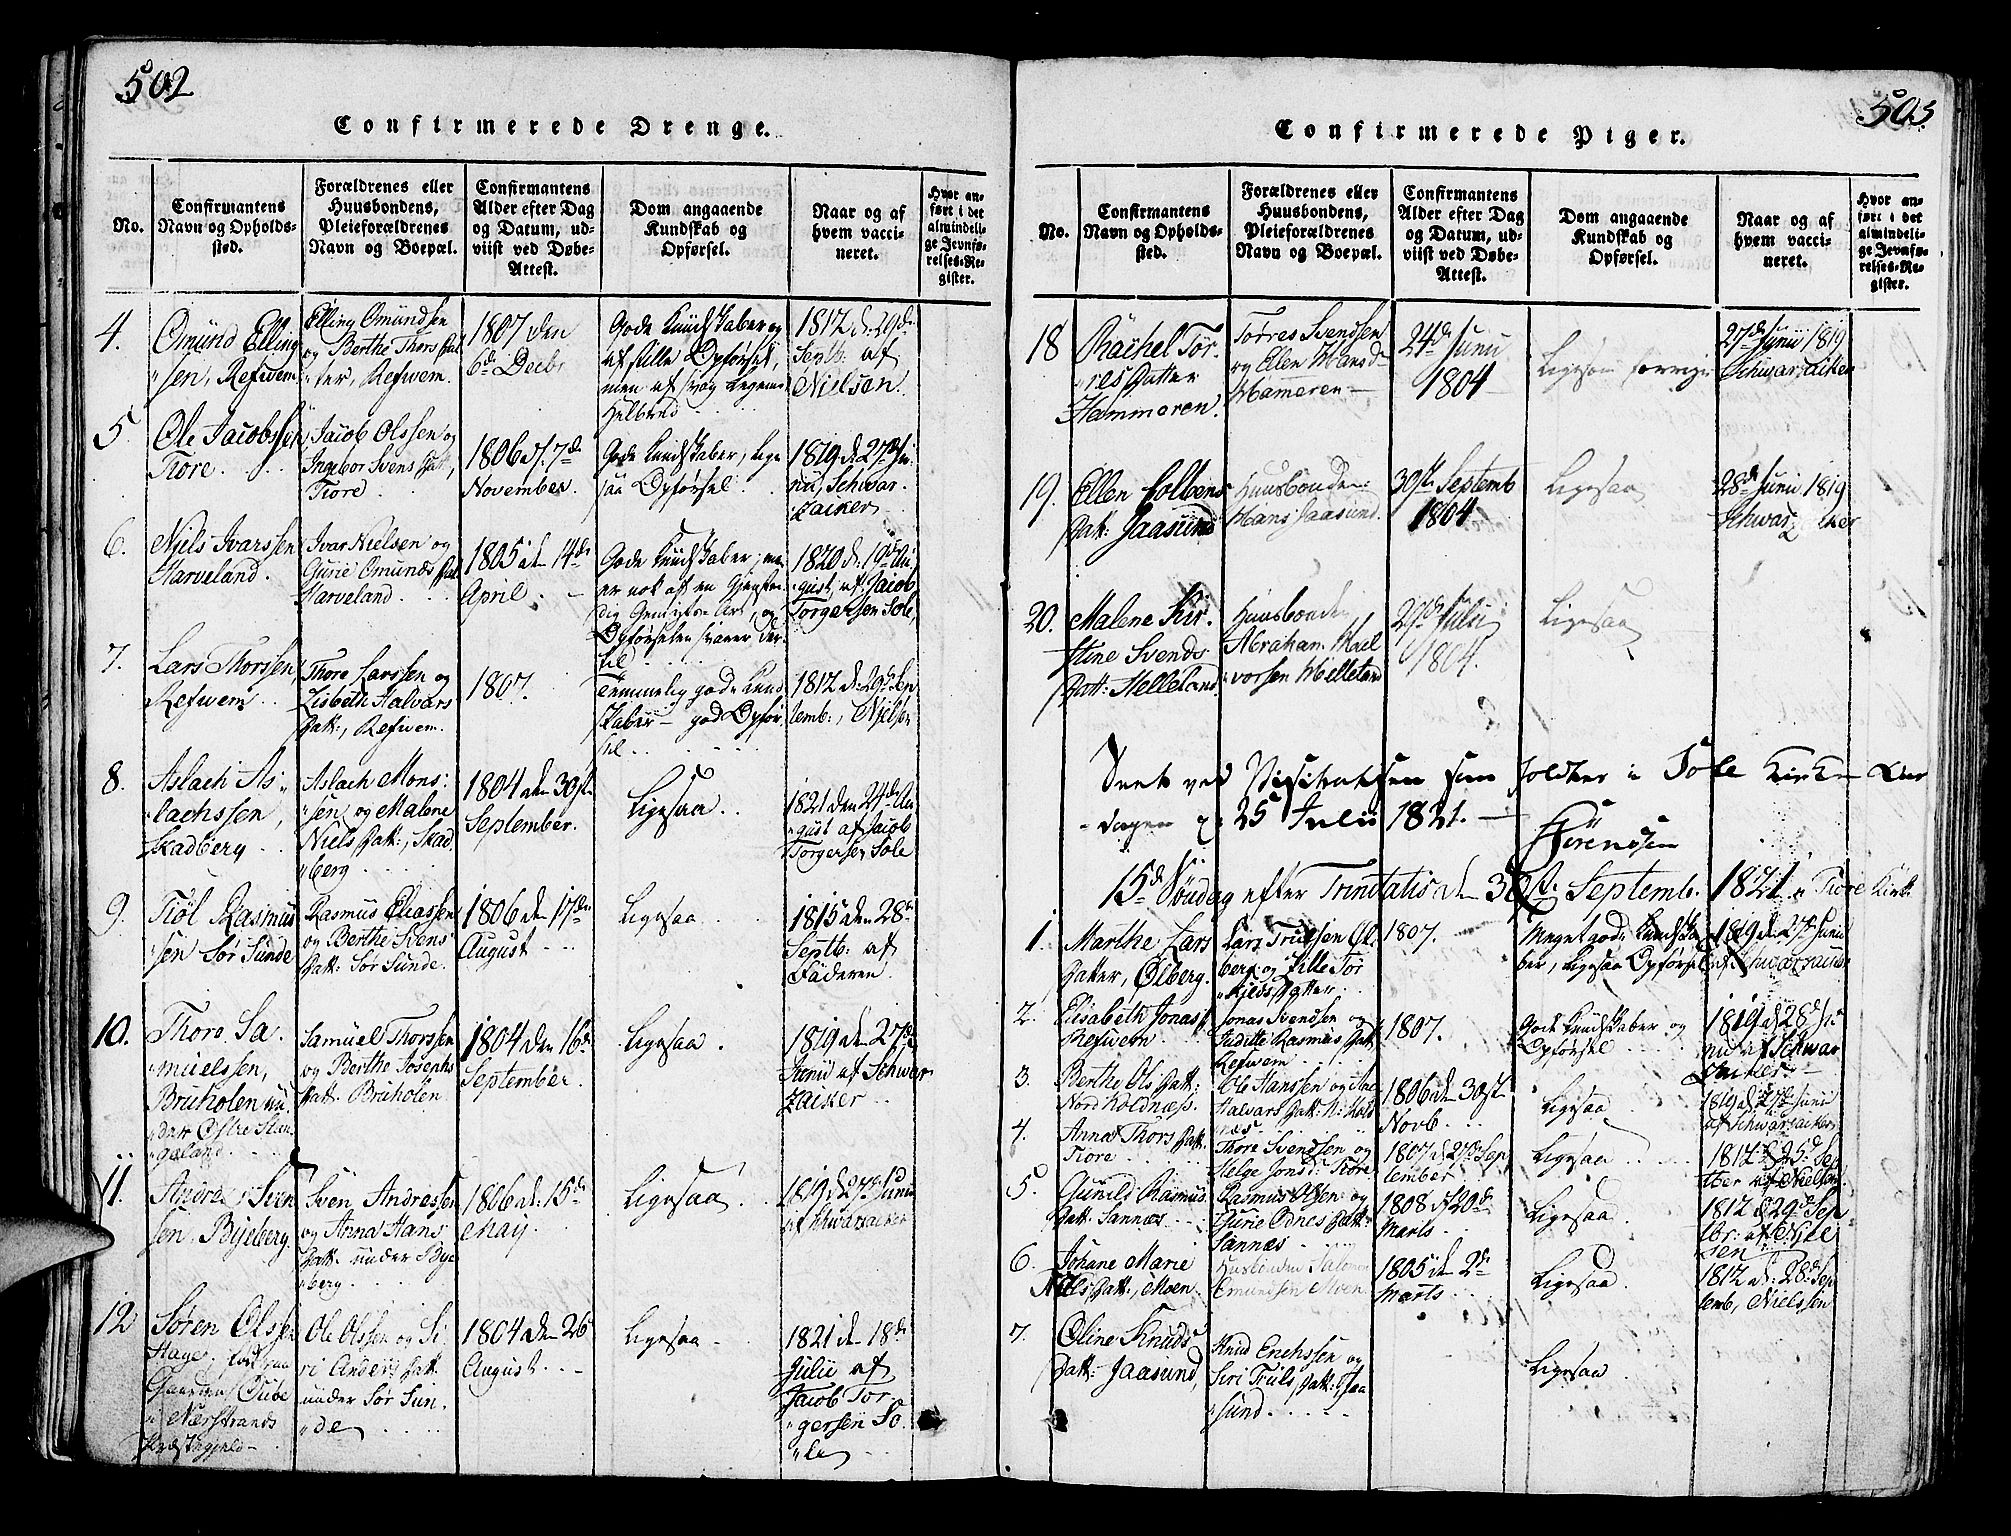 502
Confirmerede Drenge.
No.
Confirmantens
Navn og Opholds-
sted.
Forældrenes eller
Huusbondens,
Pleieforældrenes
Navn og Boepæl.
Confirmantens
Alder efter Dag
og Datum, ud-
viist ved Døbe-
Attest.
Dom angaaende
Kundskab og
Opførsel.
Naar og af
hvem vacci-
neret.
Hvor an-
ført i det
almindeli-
ge Jevnfø-
relses-Re-
gister.
4.
Omund Elling
sen, Refwem
Elling Omundsen
og Berthe Thors Dat
ter, Refwem.
1807 den
6te Decbr
Gode Kundskaber og
af stille Opførsel,
men af svag Legems
Helbred
1812 d. 29de
Septb. af
Nielsen.
5.
Ole Jacobssen
Tiore
Jacob Olssen og
Ingebor Svens Datt,
Tiore
1806 d. 7de
November
Gode Kundskaber, lige
saa Opførsel
1819 d. 27de Ju
nii, Schwar
zacker
6.
Niels Ivarssen
Harveland.
Ivar Nielsen og
Gurie Omunds Dat
Harveland
1805 den 14de
April
Gode Kundskaber,
Opførselen svarer der
til
1820 d. 19de Au
gust, af Jacob
Torgersen Sole,
7.
Lars Thorssen
Refwem
Thore Larssen og
Lisbeth Halvars
Datt:, Refwem.
1807.
Temmelig gode Kund
skaber - god Opfør
sel
1812 d. 29de Sep
temb., Nielsen
8.
Aslach As
lachssen,
Skadberg
Aslach Mons
sen og Malene
Niels Datt:, Skad
berg
1804 den 30te
September.
Ligesaa
1821 den 24de Au
gust af Jacob
Torgersen Sole
9.
Tiøl Rasmus
sen Sør Sunde
Rasmus Eliassen
og Berthe Svens
Datt: Sør Sunde.
1806 den 17de
August
Ligesaa
1815 den 28de
Septb: af
Faderen
10.
Thore Sa
muelssen,
Bruholen nu
Østre Stan
geland
Samuel Thorssen
og Berthe Josephs
Datt. Bruholen
1804 den 16de
September
Ligesaa
1819 den 27de
Junii af Schwar
zacker
11.
Andreas Sven
sen Byeberg.
Sven Andressen
og Anna Hans
Datt. under Bye
berg
1806 d. 15de
May
Ligesaa
1819 d. 27de Junii
af Schwarzacker
12
Søren Olssen
Hage
i Nerstrands
Præstegield
Ole Olssen og Si
ri Anders Datt
under Sør Sun
de
1804 den 26
August
Ligesaa
1821 den 18de
Julii af
Jacob Tor
gersen So
le
503
Confirmerede Piger.
No.
Confirmantens
Navn og Opholds-
sted.
Forældrenes eller
Huusbondens,
Pleieforældrenes
Navn og Boepæl.
Confirmantens
Alder efter Dag
og Datum, ud-
viist ved Døbe-
Attest.
Dom angaaende
Kundskab og
Opførsel.
Naar og af
hvem vacci-
neret.
Hvor an-
ført i det
almindeli-
ge Jevnfø-
relses-Re-
gister.
18
Rachel Tor
res Datter
Hammeren.
Tørres Svendsen
og Ellen Hansd
Hameren
24de Junii
1804
Ligesom forrige
27de Junii 1819
Schwarzacker
19.
Ellen Colbens
Datt: Jaasund
Huusbonden:
Hans Jaasund.
30te Septemb
1804
Ligesaa
28de Junii 1819
Schwarzacker
20.
Malene Kir
stine Svends
Datt: Helleland
Huusbonden
Abraham Hal
vorsen Helleland
29de Julii
1804.
Ligesaa
Seet ved Visitatsen som holdtes i Sole Kirke
dagen d: 25 Julii 1821.
Sörenssen
15de Søndag efter Trinitatis den 30te Septemb. 1821 i Tiore Kirk
1.
Marthe Lars
Datter, Ølberg.
Lars Trulsen Øl
berg og Sille Tor
kields Datter
1807.
Meget gode Kundska
ber, ligesaa Opførsel
1819 d. 27de Junii
af Schwarzacker
2.
Elisabeth Jonas D
Refwem
Jonas Svendsen og
Juditte Rasmus Dat
Refwem
1807.
Gode Kundskaber og
Opførsel
1819 d. 28de Ju
nii af Schwar
zacker
3.
Berthe Ols Datt:
Nord Koldnæs.
Ole Hanssen og
Halvars Datt: N: Kold
næs
1806 den 30te
Novb.
Ligesaa
1819 d. 27de Junii
af Schwarzacker
4.
Anna Thors Datt.
Tiore
Thore Svendsen og
Helge Jonsd: Tiore
1807 d. 27de Sep
tember
Ligesaa
1812 d. 25de Sep
tber af Nielsen.
5.
Gunild Rasmus
Datt. Sannæs
Rasmus Olsen og
Gurie Ednes Datt:
Sannæs
1808 d. 20de
Marts
Ligesaa
1812 d. 29de Sep
tbr: af Niel
sen
6.
Johane Marie
Nils Datt:, Moen.
Husbonden Salomon
Omundsen Moen
1805 d. 2de
Marts
Ligesaa
1812 d: 28de Sep
temb, Nielssen
7.
Oline Knuds
Datt: Jaasund,
Knud Erichssen og
Siri Truls Datt: Jaa
sund
Ligesaa